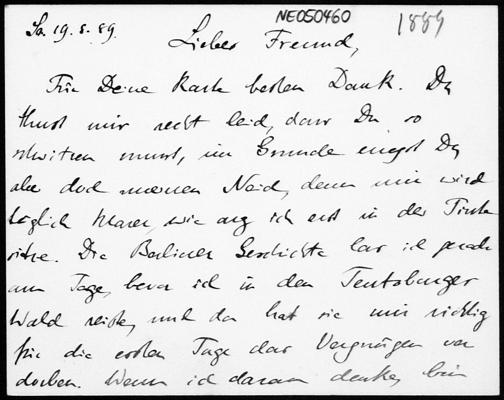 Sa. 19.8.89.
NE050460
1889
Lieber Freund,
Für Deine Karte besten Dank. Du
thust mir recht leid, dass Du so
schwitzen musst, im Grunde erregst Du
aber doch meinen Neid, denn mir wird
täglich klarer, wie arg ich erst in der Tinte
sitze. Die Berliner Geschichte las ich gerade
am Tage, bevor ich in den Teutoburger
Wald reiste, und da hat sie mir richtig
für die ersten Tage das Vergnügen ver
dorben. Wenn ich daran denke, bin